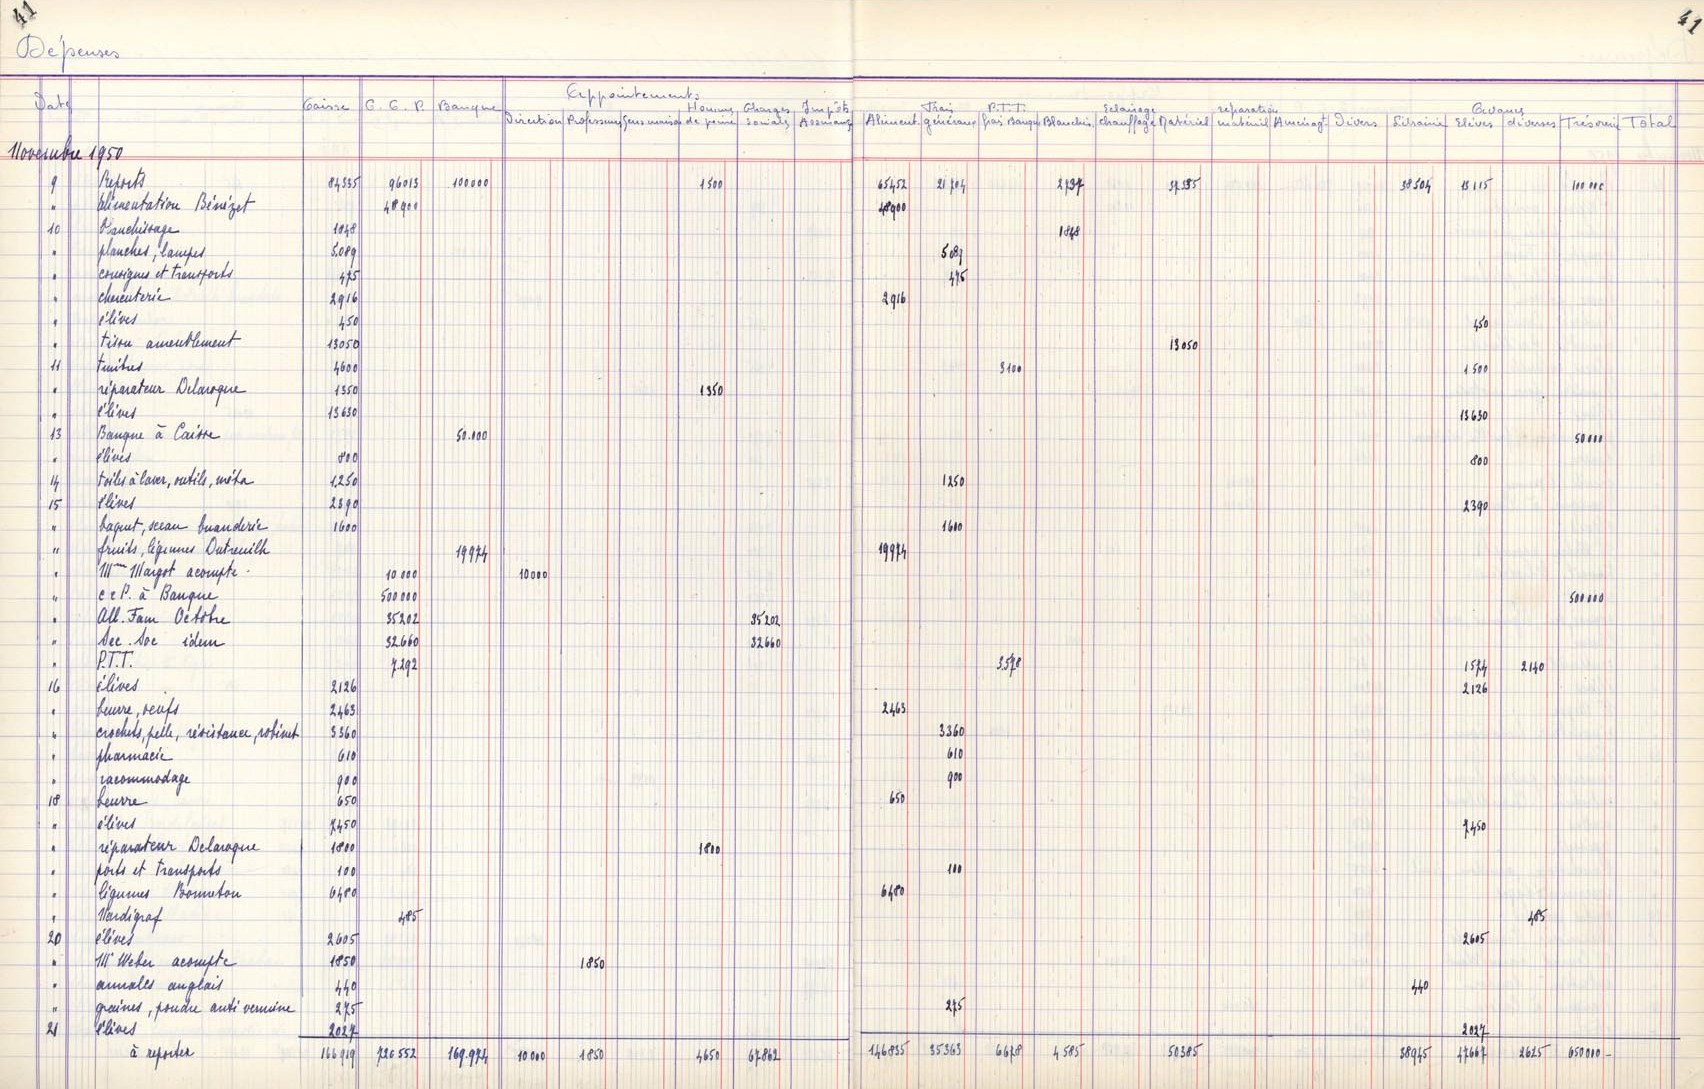 41 41
Dépenses
Appointements
Date Caisse C. C. P. Banque Direction Professeurs Gens maison Homme de peine Charges sociales Impôts Assurances Aliment. Frais généraux P.T.T. frais Banque Blanchis. Eclairage chauffage Matériel réparation matériel Aménagt Divers Librairie Avances Elèves diverses Trésorerie Total
Novembre 1950
9 Reports 84335 96013 100000 1500 65452 21704 2737 37335 38504 15115 100000
" alimentation Bénézet 48900 48900
10 Blanchissage 1848 1848
" planches, lampes 5089 5089
" consignes et transports 475 475
" charcuterie 2916 2916
" élèves 450 450
" tissu ameublement 13050 13050
11 timbres 4600 3100 1500
" réparateur Delaroque 1350 1350
" élèves 13630 13630
13 Banque à Caisse 50.000 50000
" élèves 800 800
14 toiles à laver, outils, méta 1250 1250
15 élèves 2390 2390
" baquet, sceau buanderie 1600 1600
" fruits, légumes Dutreuilh 19974 19974
" Mme Margot acompte 10000 10000
" c c P. à Banque 500000 500000
" All. Fam Octobre 35202 35202
" Sec. Soc idem 32660 32660
" P.T.T. 7.292 3.578 1574 2140
16 élèves 2126 2126
" beurre, oeufs 2463 2463
" crochets, pelle, résistance, robinet 3360 3360
" pharmacie 610 610
" racommodage 900 900
18 beurre 650 650
" élèves 7450 7450
" réparateur Delaroque 1800 1800
" ports et transports 100 100
" légumes Bonneton 6480 6480
" Nardigraf 485 485
20 élèves 2605 2605
" Mr Weber acompte 1850 1850
" annales anglais 440 440
" graines, poudre anti vermine 275 275
21 élèves 2027 2027
à reporter 166919 720552 169.974 10000 1850 4650 67862 146835 35363 6678 4585 50385 38945 47667 2625 650000 -